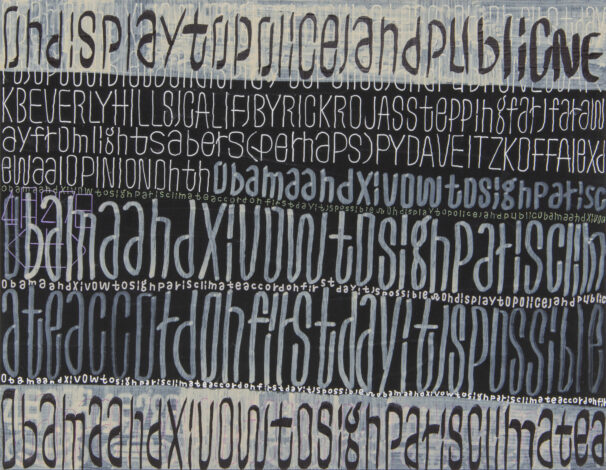 OndisplaytopolicejandpubliCNE
KBEVERLYHILLSJCALIFJBYRICKROJASSteppingfarJfaraw
ayfromlightsabersCperhapsJPYDAVEITZKOFFAlexd
ewaalOPINIONOhthObamaandXiVowtosighparisc
ObamaandXiVowtosighparisclimateaccordonfirstdayitJspossible
4127b
ObamaandXiVowtosighparisclim
ObamaandXiVowtosighparisclimateaccordonfirstdayitJspossibleOndisplaytopoliceJandpublic
ateaccordonfirstdayitJspossible
ObamaandXiVowtosighparisclimateaccordonfirstdayitJspossibleObamaandXiVowtosighparisclimateaccordonfir
ObamaandXiVowtosighparisclimatea